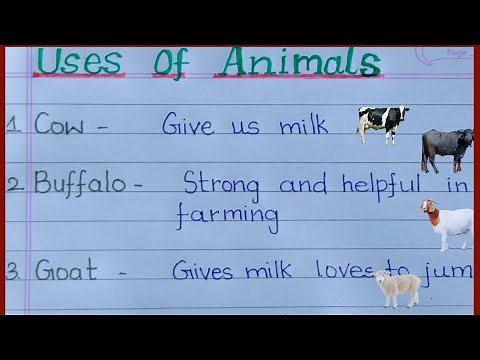 Page
Uses Of Animals
1. Cow - Give us milk
2. Buffalo - Strong and helpful in
farming
3. Goat - Gives milk loves to jum